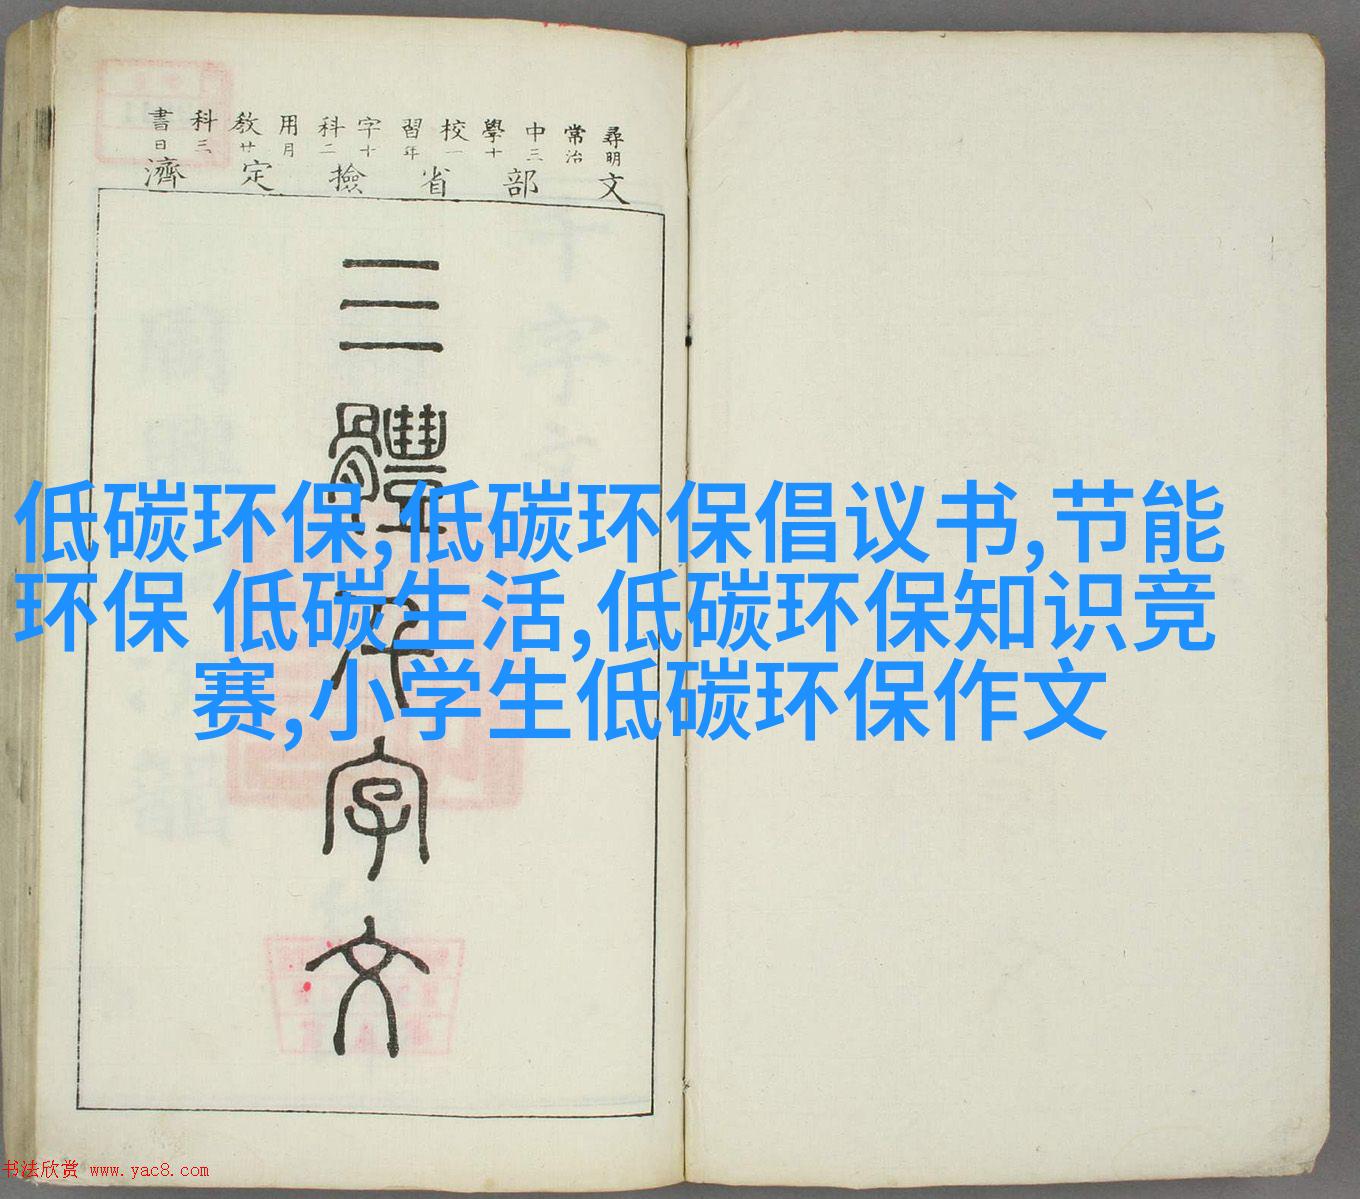 書科教用科字習校學中常尋
日三廿月二十年一十三治明
濟定撿省部文
三體千字文
低碳环保,低碳环保倡议书,节能
环保 低碳生活,低碳环保知识竞
赛,小学生低碳环保作文
书法欣赏 www.yac8.com